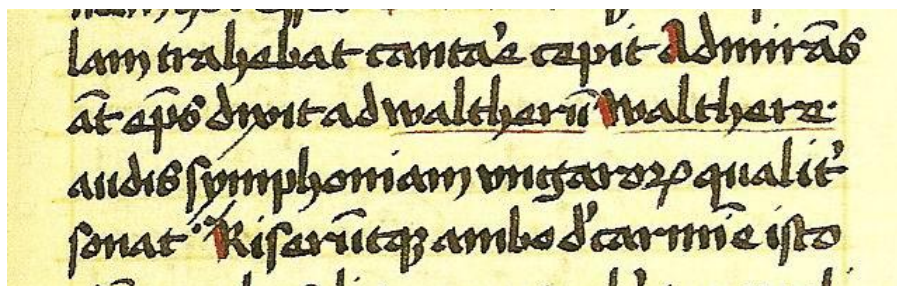 lam trahebat canta᾽e cepit Admirās
āt ep̄s dixit ad waltherū Walthere·
audis symphoniam vngaroꝝ qualit᾽
sonat· Riserūtqꝫ ambo d᾽ carmīe isto